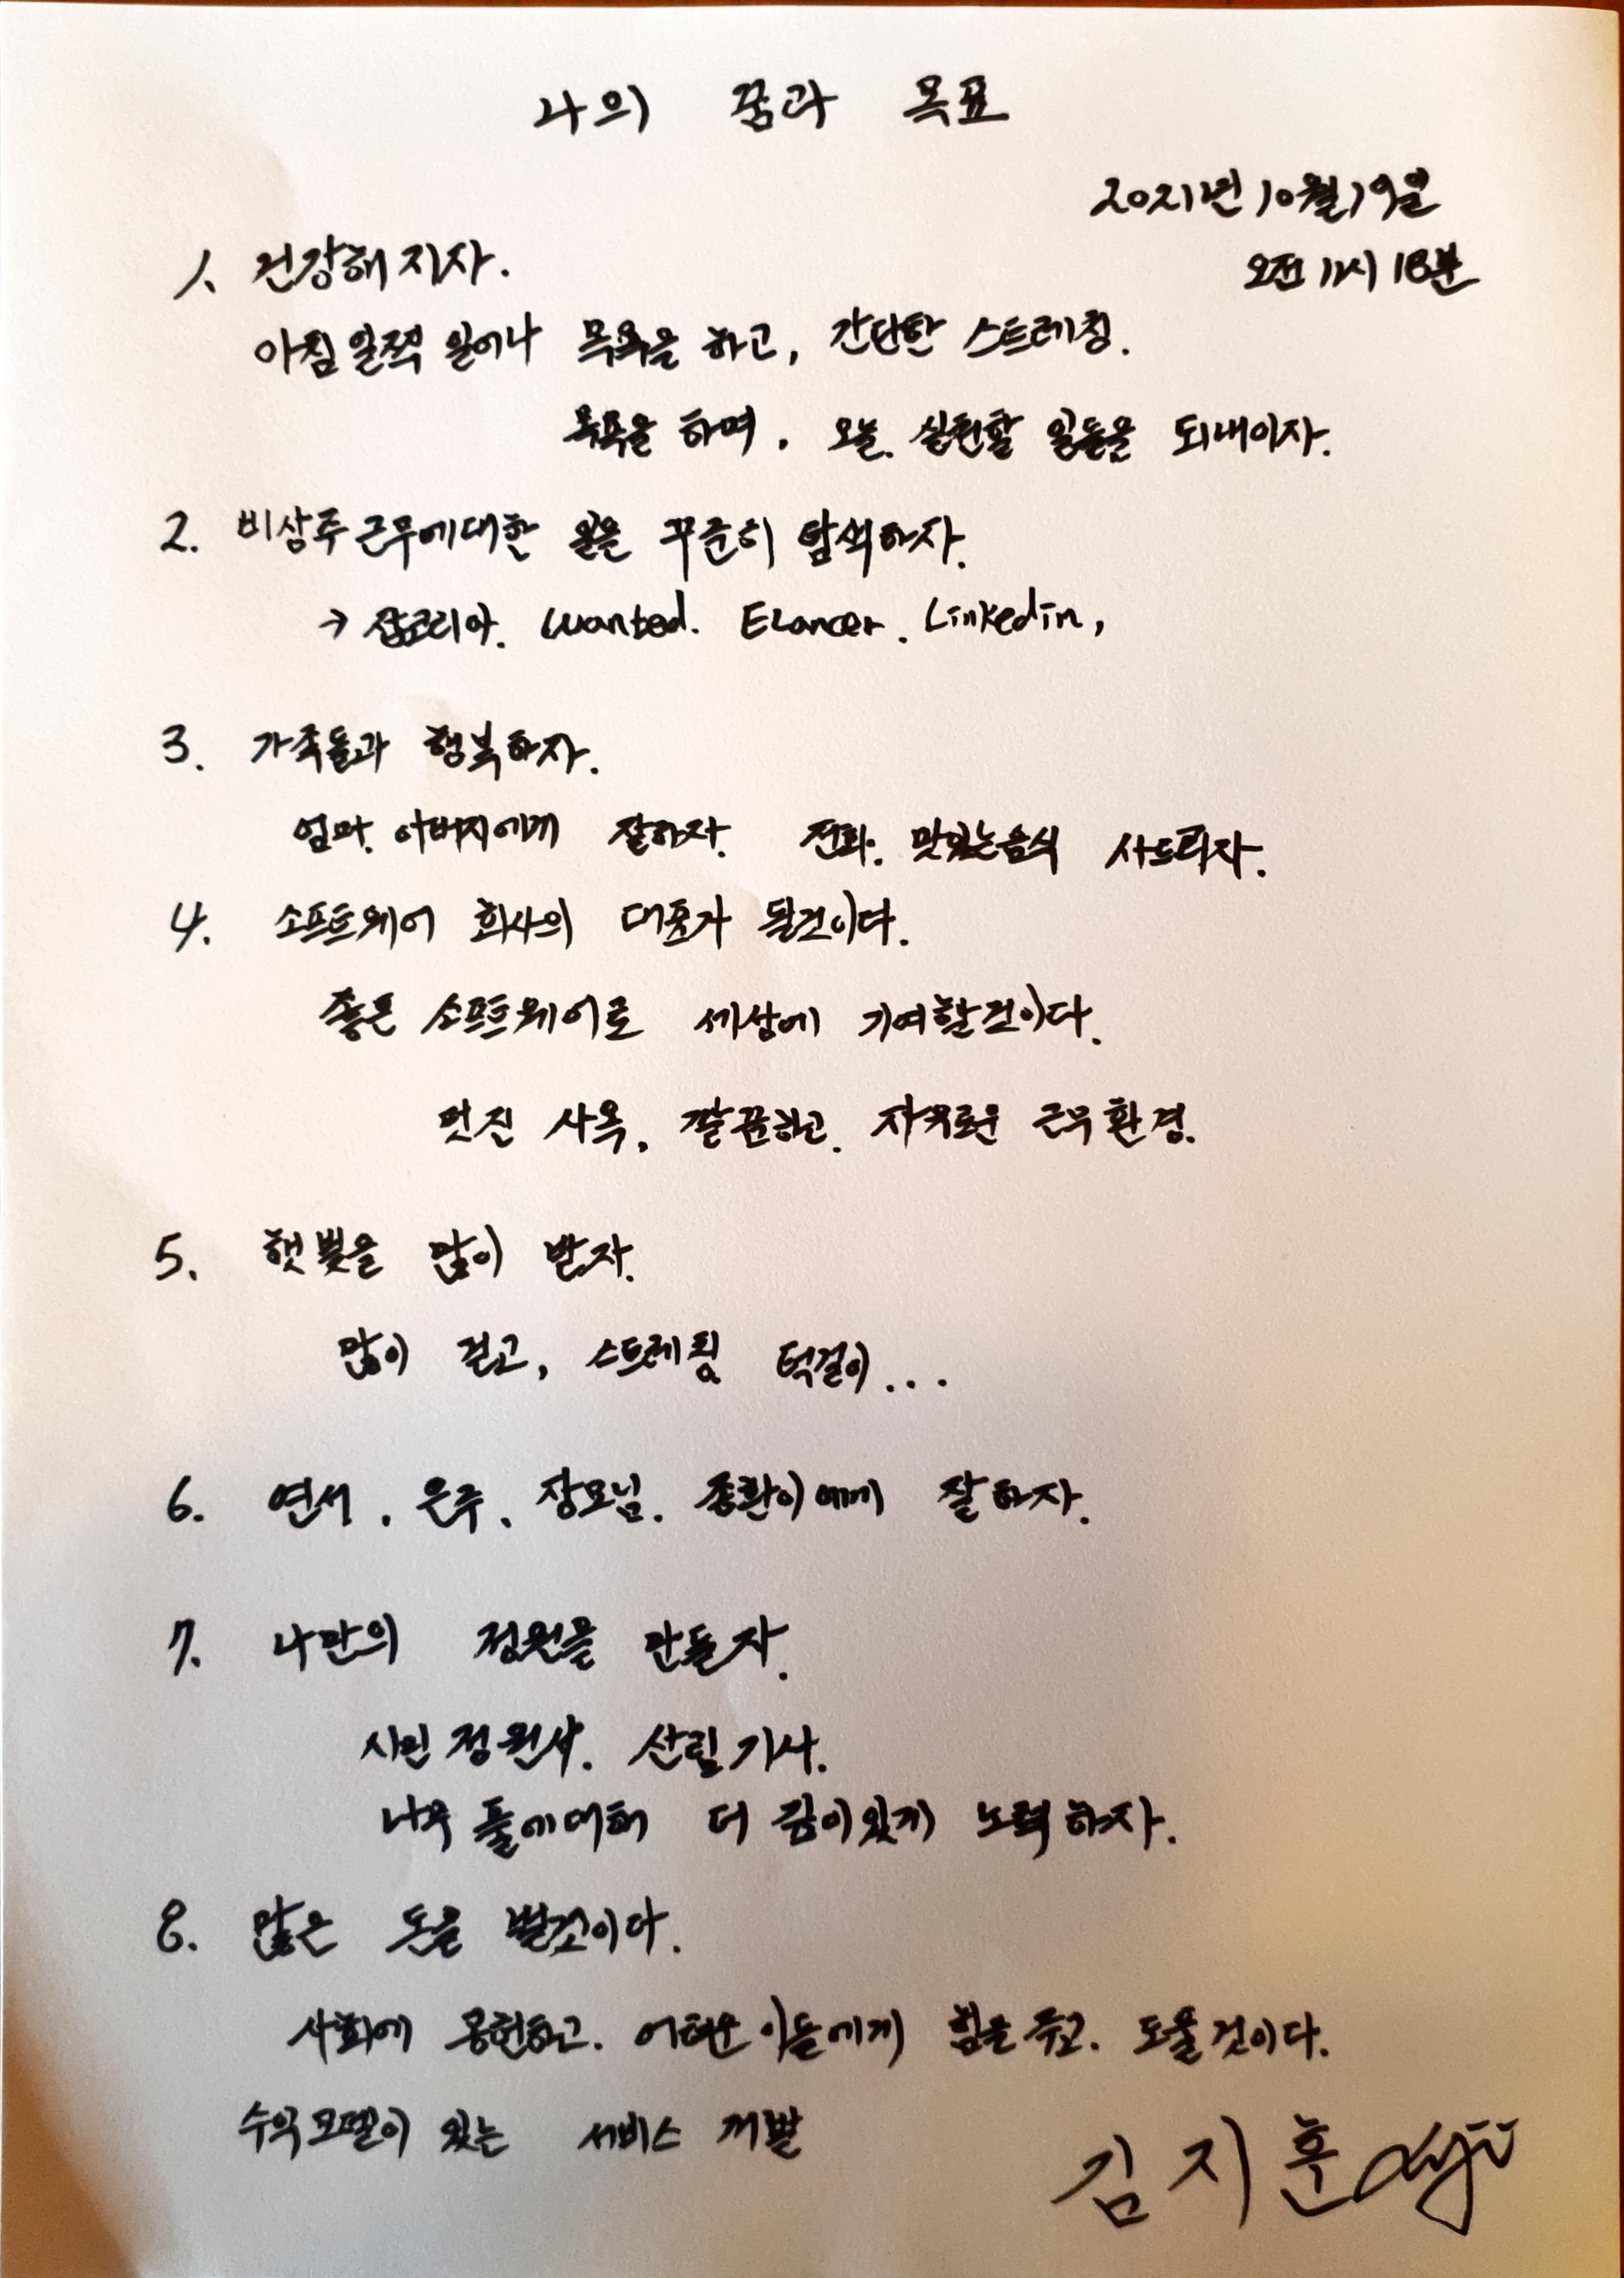 나의 꿈과 목표
2021년 10월 19일
오전 11시 18분
1. 건강해지자.
아침 일찍 일어나 목욕을 하고, 간단한 스트레칭.
목욕을 하며, 오늘. 실천할 일들을 되내이자.
2. 비상주 근무에대한 일을 꾸준히 탐색하자.
→ 잡코리아. Wanted. Elancer. Linkedin,
3. 가족들과 행복하자.
엄마. 아버지에게 잘하자. 전화. 맛있는음식 사드리자.
4. 소프트웨어 회사의 대표가 될것이다.
좋은 소프트웨어로 세상에 기여할것이다.
멋진 사옥, 깔끔하고. 자유로운 근무환경.
5. 햇빛을 많이 받자.
많이 걷고, 스트레칭 턱걸이...
6. 연서, 은주, 장모님. 종환이에게 잘하자.
7. 나만의 정원을 만들자.
시민정원사. 산림기사.
나무 풀에대해 더 깊이있게 노력하자.
8. 많은 돈을 벌것이다.
사회에 공헌하고. 어려운 이들에게 힘을주고. 도울것이다.
수익모델이 있는 서비스 개발
김지훈